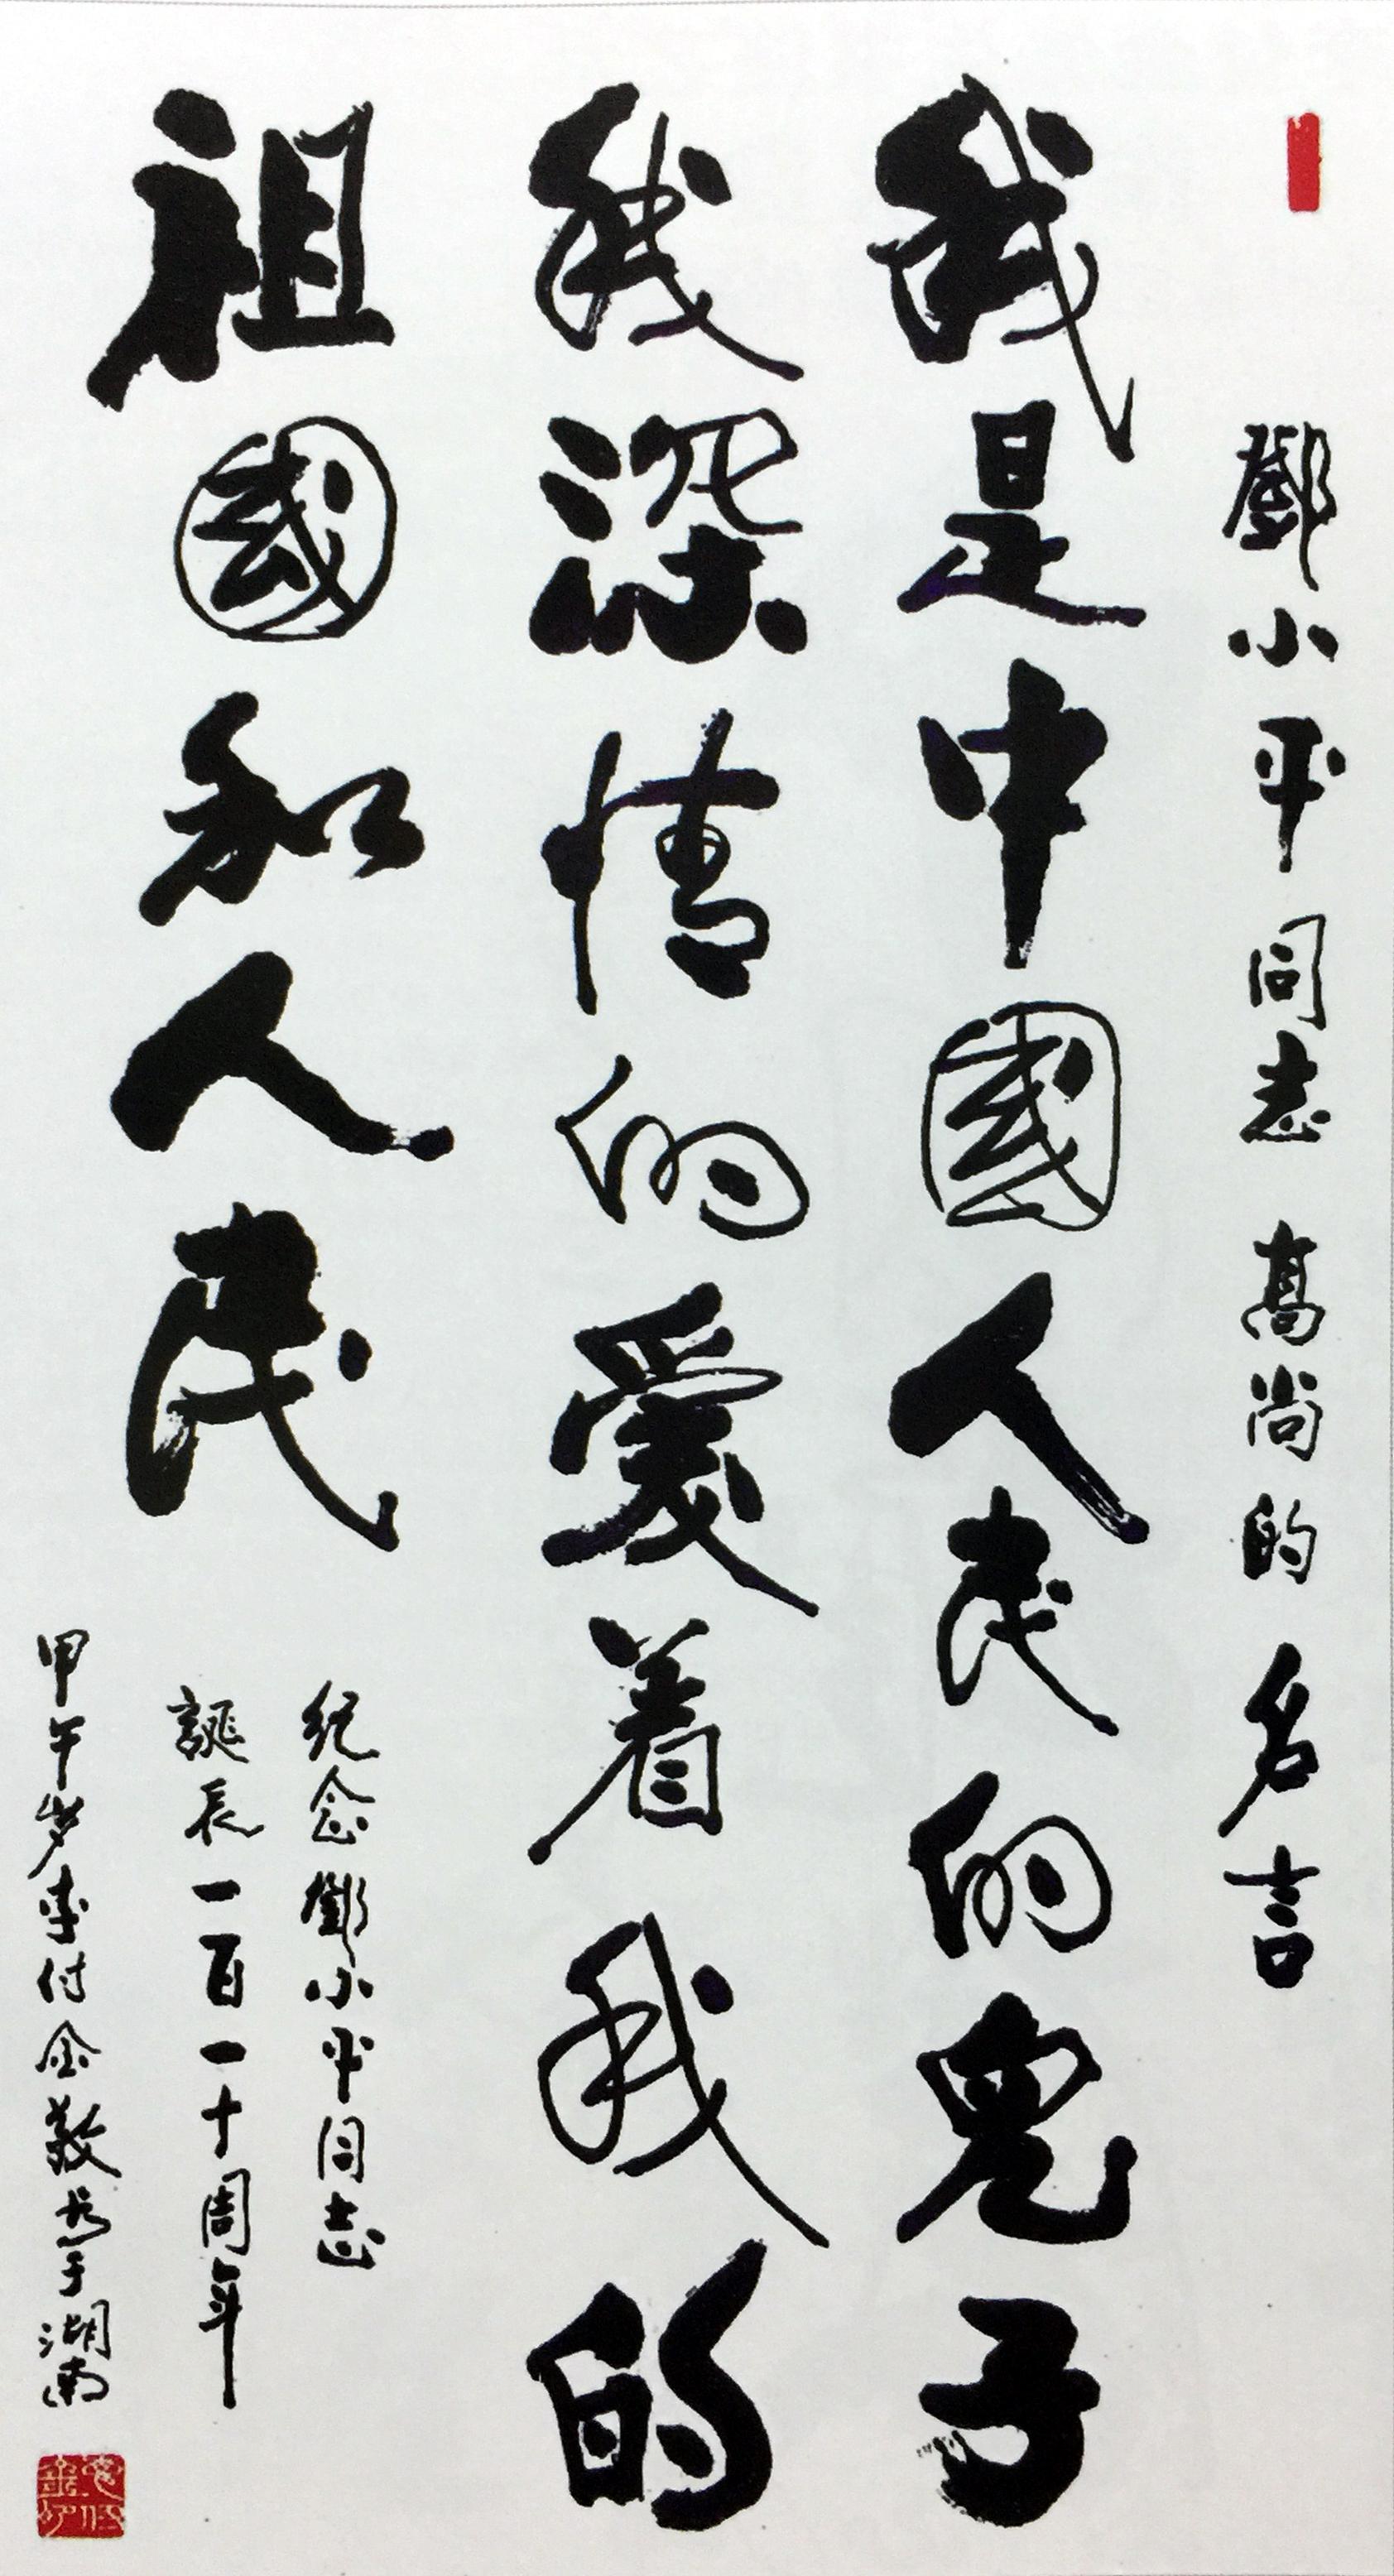 鄧小平同志高尚的名言
我是中國人民的兒子
我深情的愛着我的
祖國和人民
纪念鄧小平同志
誕辰一百一十周年
甲午岁李付金敬书于湖南